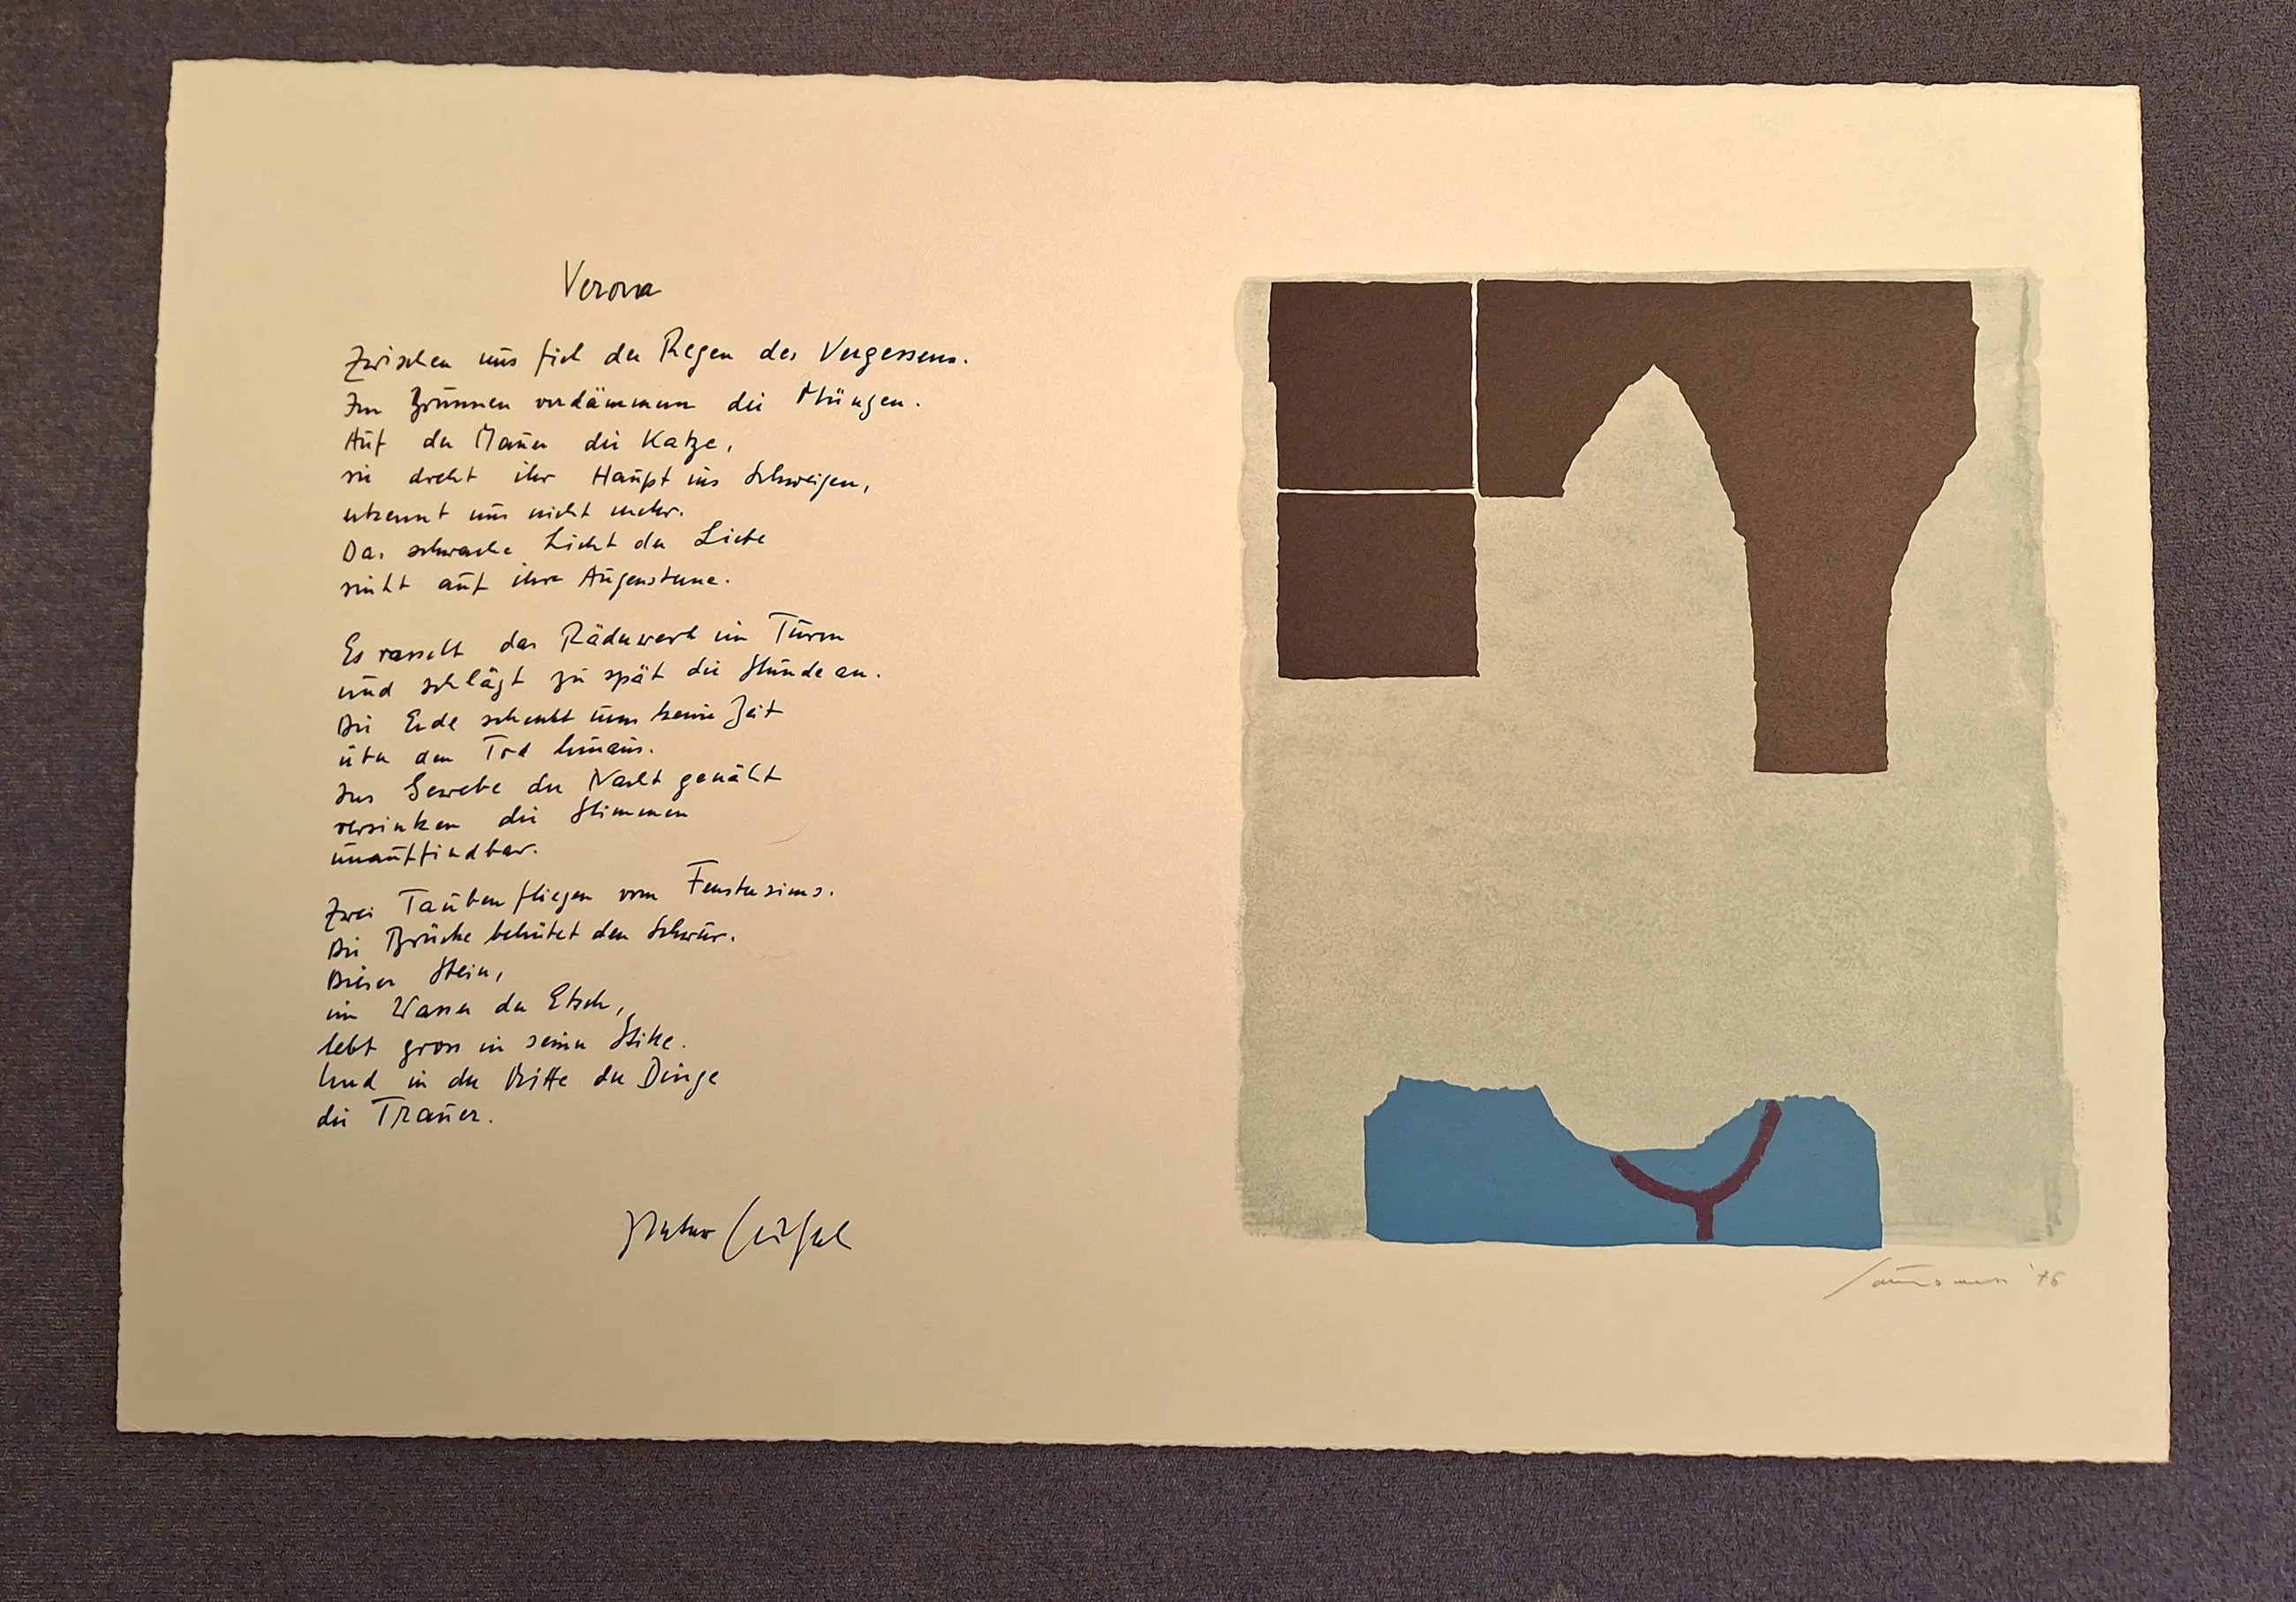 Verona
Zwischen uns fiel der Regen des Vergessens.
Im Brunnen verdämmern die Münzen.
Auf der Mauer die Katze,
sie dreht ihr Haupt ins Schweigen,
erkennt uns nicht mehr.
Das schwache Licht der Liebe
sinkt auf ihre Augensterne.
Es rasselt das Räderwerk im Turm
und schlägt zu spät die Stunde an.
Die Erde schenkt uns keine Zeit
über den Tod hinaus.
Ins Gewebe der Nacht genäht
versinken die Stimmen
unauffindbar.
Zwei Tauben fliegen vom Fenstersims.
Die Brücke behütet den Schwur.
Dieser Stein,
im Wasser der Etsch,
lebt gross in seiner Stille.
Und in der Mitte der Dinge
die Trauer.
Peter Huchel
Santomaso '76